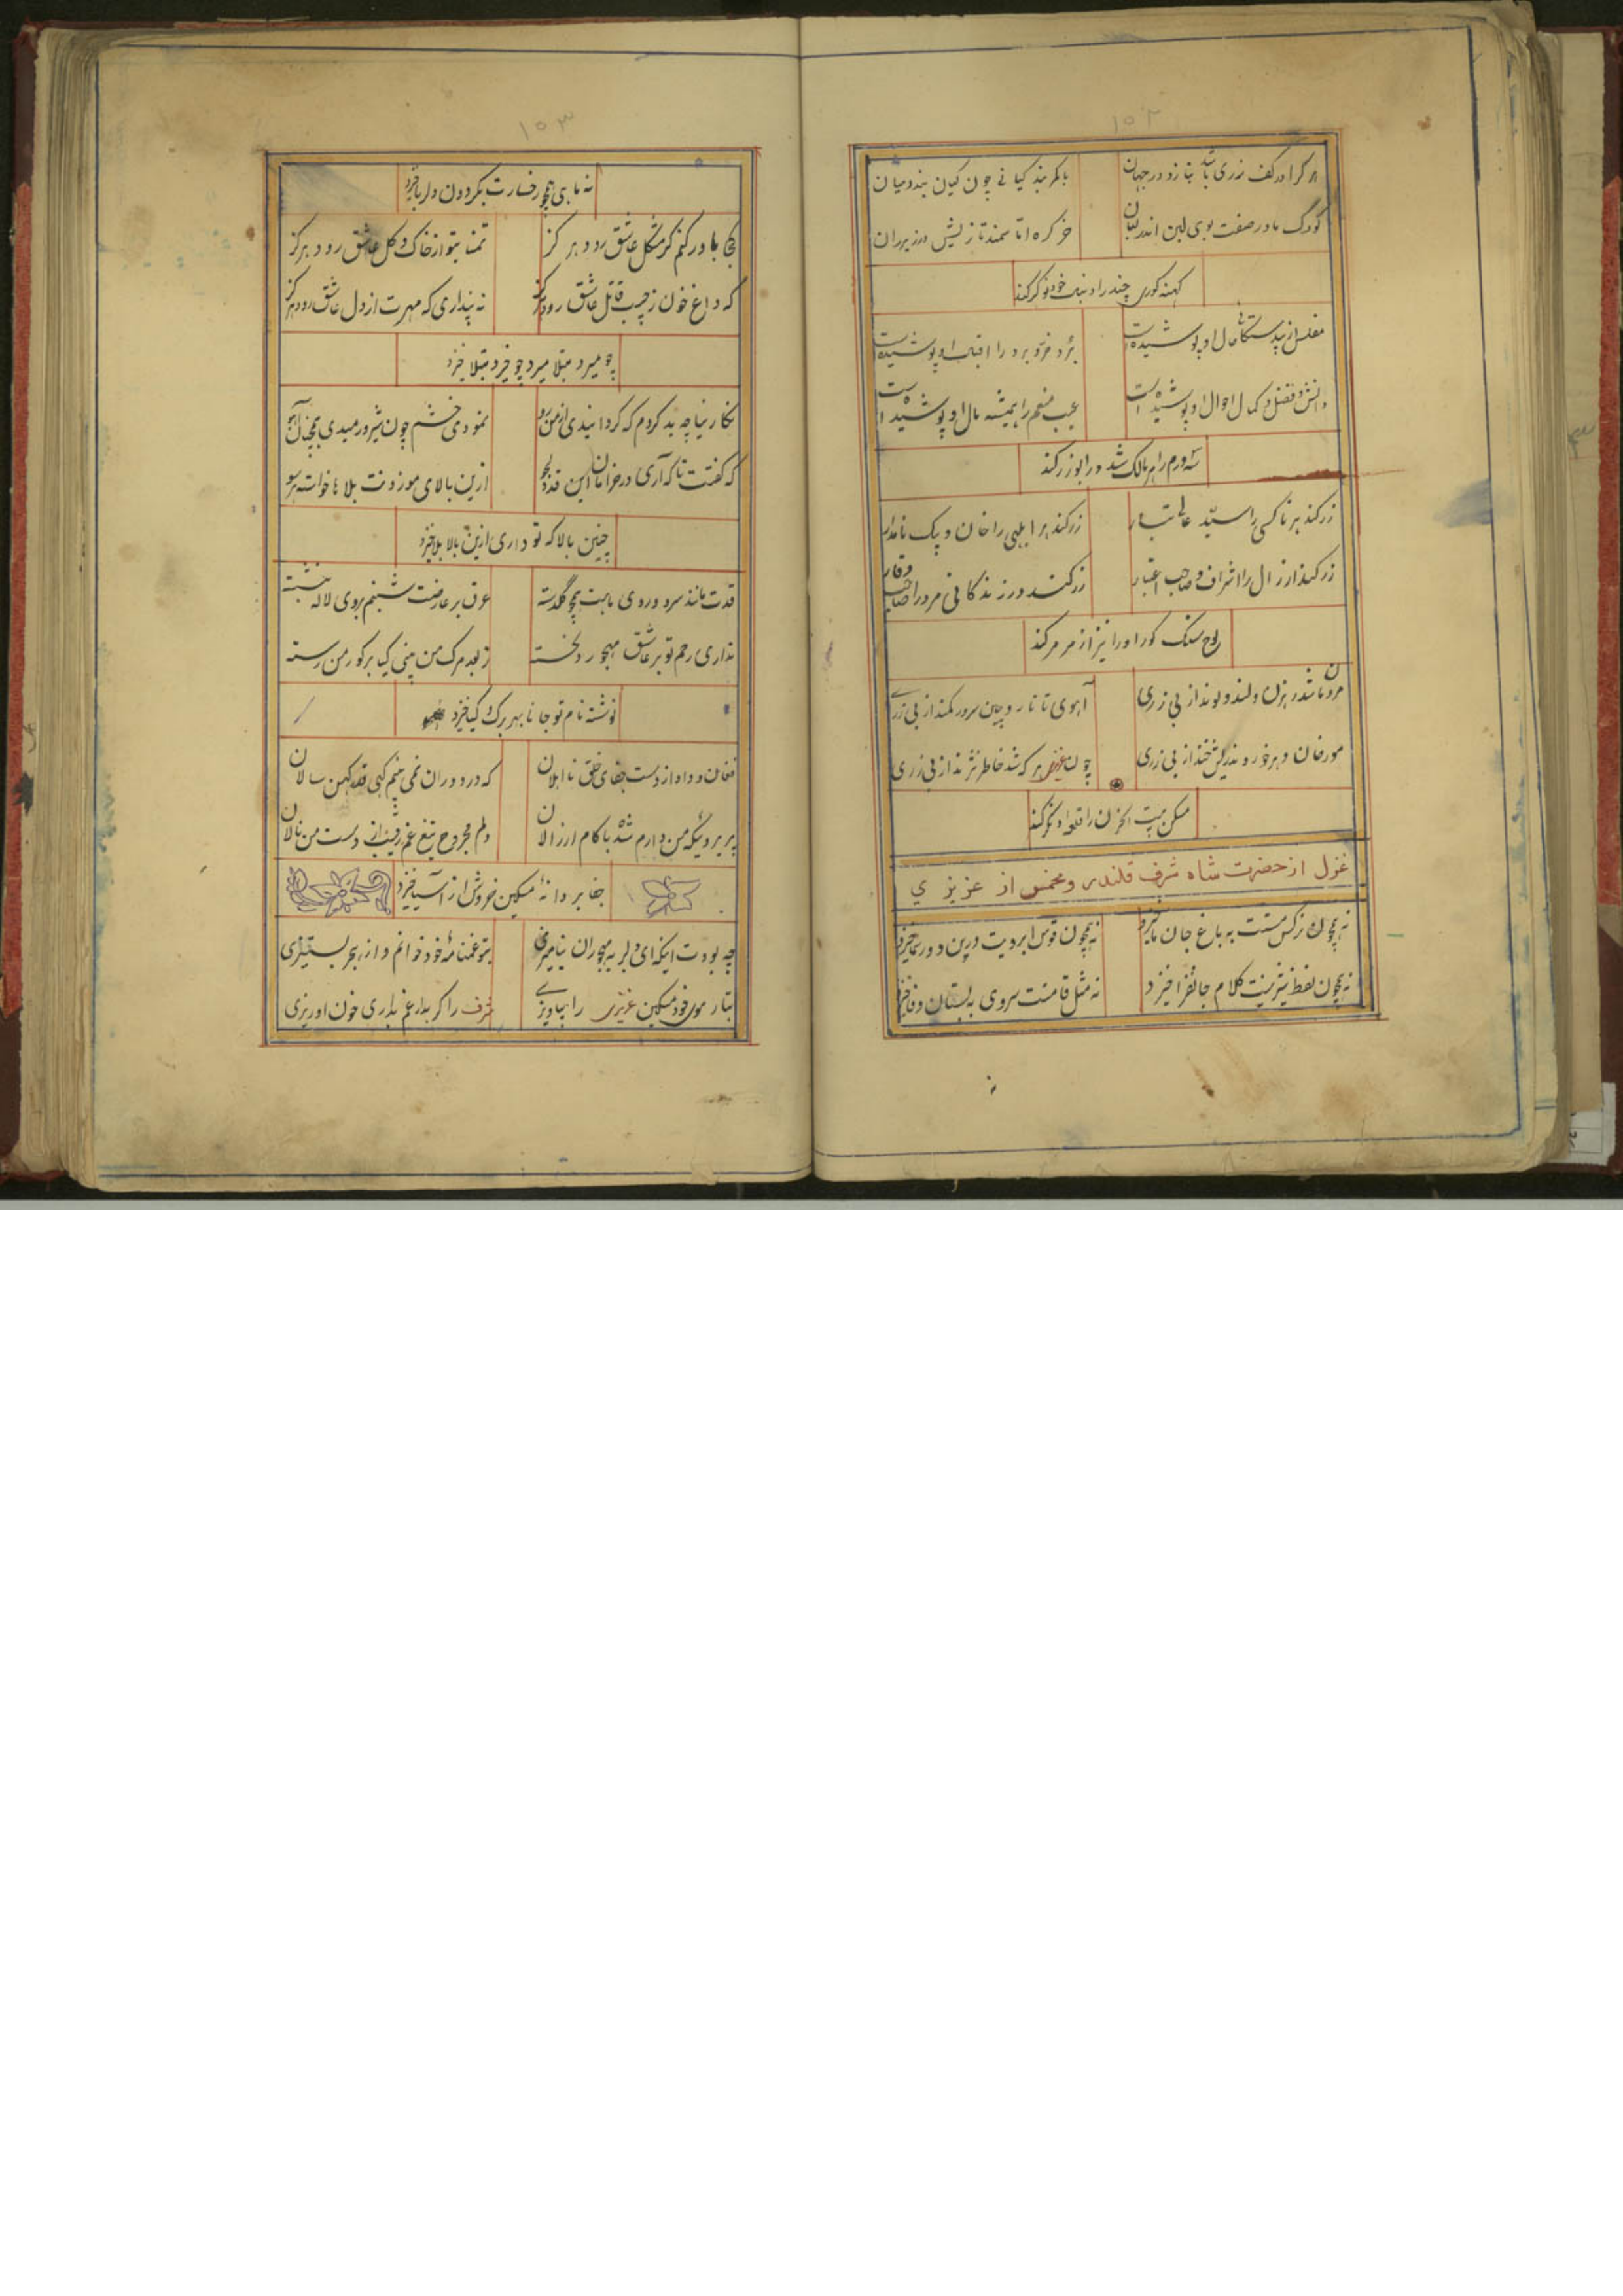 ۱۵۲
هر کرا در کف زری باشد بنازد در جهان
با کمر بند کیانی چون کیان بندد میان
کودک مادر صفت بوی لبن اندر لبان
خر کره اتا سمند تازیش در زیر ران
کهنه کوری چند را دنیای خود نوکر کند
مفلس از بیدستگاهی حال او پوشیده است
برد خز و برد را اقبال او پوشیده است
دانش و فضل و کمال احوال او پوشیده است
عیب منعم را همیشه مال او پوشیده است
شه درم رام مالک شد ورا بوزر کند
زر کند هر ناکسی را سید عالی تبار
زر کند هر ابلهی را خان و بیک نامدار
زر کند ارزال را اشراف و صاحب اعتبار
زر کند در زندکانی مرد را صاحب وقار
لوح سنک کور او را نیز از مرمر کند
مردمان شد رهزن و لند و لوند از بی زری
آهوی تاتار و چین سر در کمند از بی زری
مورخان و هرخور و ندریش خند از بی زری
چون عزیز هر که شد خاطر نژند از بی زری
مسکن بیت الحزن را قلعه او نکر کند
غزل از حضرت شاه شرف قلندر ومخمس از عزیزی
نه همچون نرکس مستت به باغ جان ما خیزد
نه همچون قوس ابرویت درین دور سما خیزد
نه همچون لفظ شیرینت کلام جانفزا خیزد
نه مثل قامتت سروی به بستان وفا خیزد
۱۵۳
نه ماهی همچو رخسارت بکردون دلربا خیزد
کجا باور کنم کز مشکل عاشق رود هرکز
تمنا بتو از خاک و کل عاشق رود هرکز
که داغ خون ز جیب قاتل عاشق رود هرکز
نه پنداری که مهرت از دل عاشق رود هرکز
چو میرد مبتلا میرد چو خیزد مبتلا خیزد
نکارینا چه بد کردم که کردانیدی از من رو
نمودی خشم چون شیر و رمیدی همچنان آهو
که کفتت تا که آری در خرامان این قد دلجو
ازین بالای موزونت بلاها خواسته هر سو
چنین بالا که تو داری ازین بالا بلا خیزد
قدت مانند سرو و روی مابت همچو کلدسته
عرق بر عارضت شبنم بروی لاله بنشسته
نداری رحم تو بر عاشق مهجور دلخسته
ز بعد مرک من بینی کیا بر کور من رسته
نوشته نام تو جانا بهر برک و کیا خیزد
فغان و داد از دست جفای خلق نااهلان
که در دوران نمی بینم کسی قد کهن سالان
پریروئیکه من دارم شده با کام ارزالان
دلم مجروح تیغ غم رقیب از دست من نالان
جفا بر دانهٔ مسکین خروش از آسیا خیزد
چه بودت اینکه ای دلبر بمهجوران نیامیزی
بتو غمنامهٔ خود خوانم و از بهر بستیزی
بتار موی خود مسکین عزیزی را بیاویزی
شرف را کر بداغ غم بذاری خون او ریزی